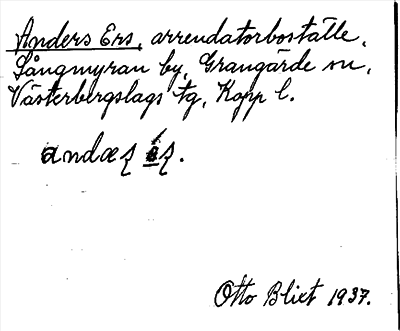 Anders Ers, arrendatorboställe,
Sångmyran by, Grangärde sn,
Västerbergslags tg, Kopp l.
andæ
Otto Blixt 1937.